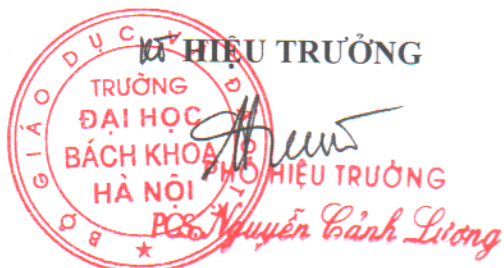 KT HIỆU TRƯỞNG
BỘ GIÁO DỤC VÀ ĐÀO TẠO
TRƯỜNG
ĐẠI HỌC
BÁCH KHOA
HÀ NỘI
PHÓ HIỆU TRƯỞNG
PGS. Nguyễn Cảnh Lương